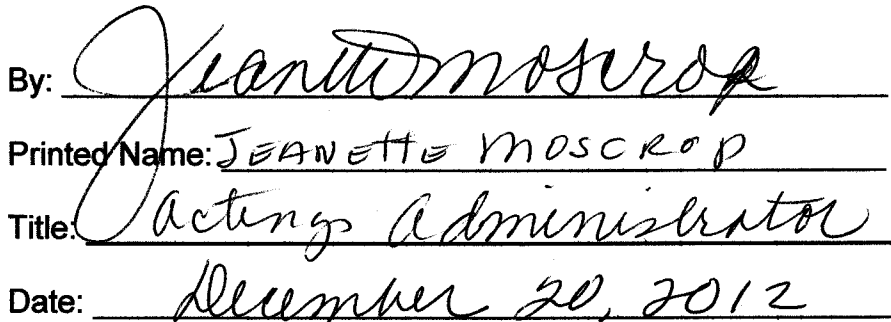 By: Jeanette Moscrop
Printed Name: JEANETTE MOSCROP
Title: Acting Administrator
Date: December 20, 2012